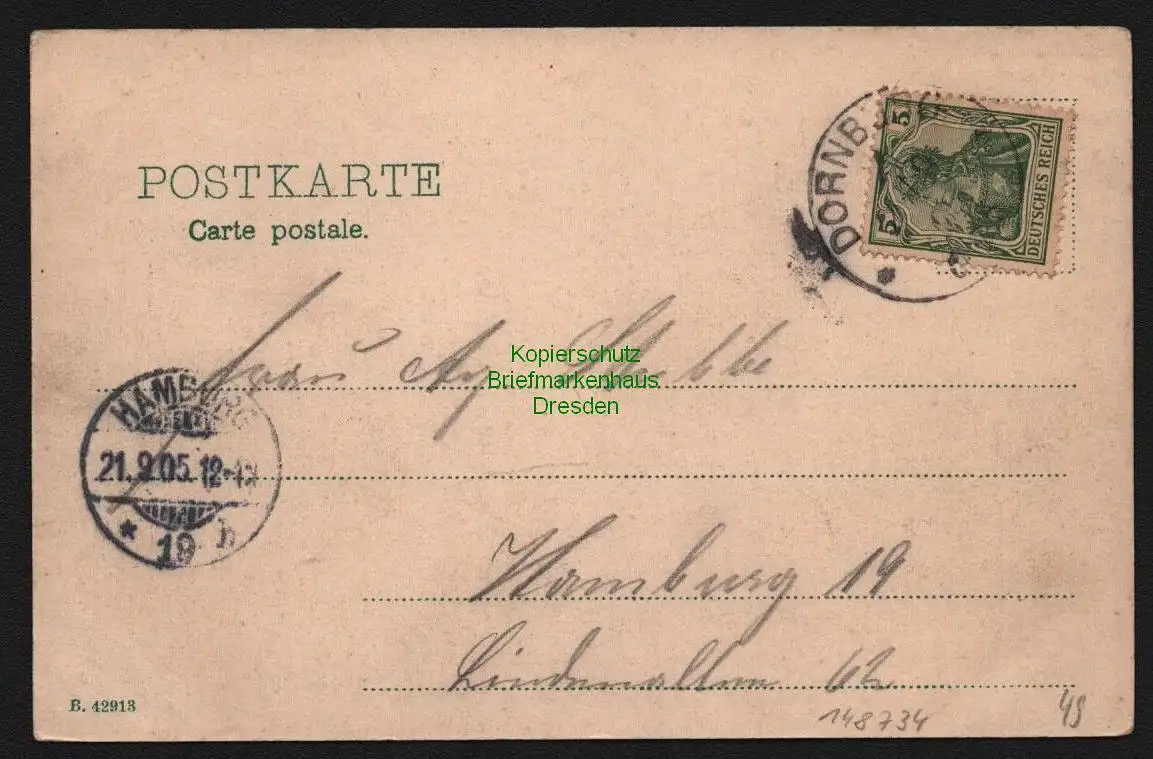 POSTKARTE
Carte postale.
DORNB
5
5
DEUTSCHES REICH
Frau Aug.
Kopierschutz
Briefmarkenhaus
Dresden
HAMBURG
21.9.05.12-
* 19 h
Hamburg 19
Lindenallee 62
B. 42913
148734
49